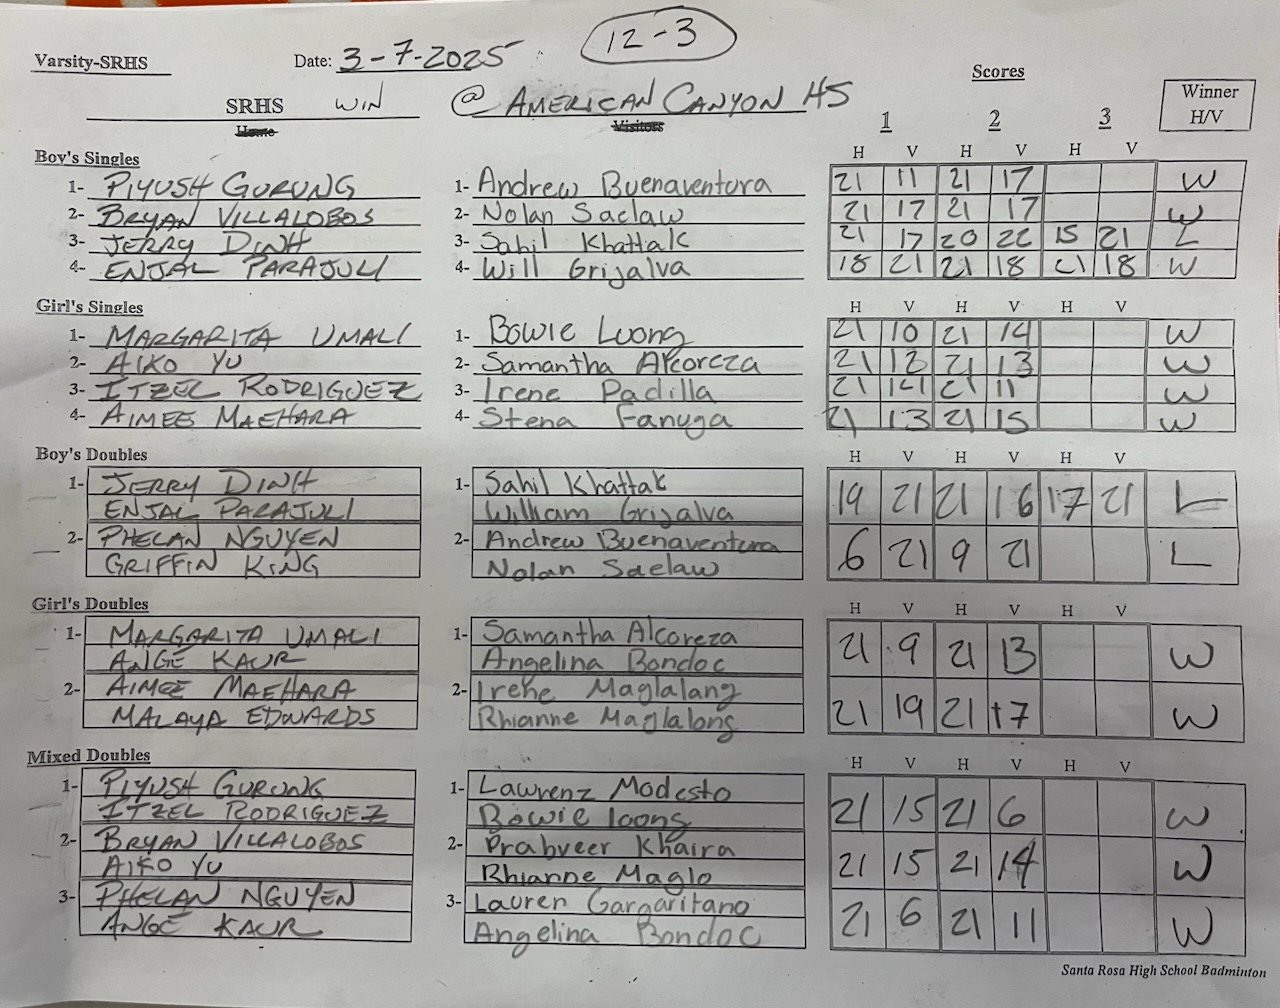 12-3
Varsity-SRHS Date: 3-7-2025
Scores
SRHS WIN @ AMERICAN CANYON HS
Home Visitors 1 2 3 Winner H/V
Boy's Singles H V H V H V
1- PIYUSH GURUNG 1- Andrew Buenaventura 21 11 21 17 W
2- BRYAN VILLALOBOS 2- Nolan Saelaw 21 17 21 17 W
3- JERRY DINH 3- Sahil Khattak 21 17 20 22 15 21 L
4- ENJAL PARAJULI 4- Will Grijalva 18 21 21 18 21 18 W
Girl's Singles H V H V H V
1- MARGARITA UMALI 1- Bowie Luong 21 10 21 14 W
2- AIKO YU 2- Samantha Alcoreza 21 12 21 13 W
3- ITZEL RODRIGUEZ 3- Irene Padilla 21 14 21 11 W
4- AIMEE MAEHARA 4- Stena Fanuga 21 13 21 15 W
Boy's Doubles H V H V H V
1- JERRY DINH 1- Sahil Khattak 19 21 21 16 17 21 L
ENJAL PARAJULI William Grijalva
2- PHELAN NGUYEN 2- Andrew Buenaventura 6 21 9 21 L
GRIFFIN KING Nolan Saelaw
Girl's Doubles H V H V H V
1- MARGARITA UMALI 1- Samantha Alcoreza 21 9 21 13 W
ANGE KAUR Angelina Bondoc
2- AIMEE MAEHARA 2- Irene Maglalang 21 19 21 17 W
MALAYA EDWARDS Rhianne Maglalang
Mixed Doubles H V H V H V
1- PIYUSH GURUNG 1- Lawrenz Modesto 21 15 21 6 W
ITZEL RODRIGUEZ Bowie loong
2- BRYAN VILLALOBOS 2- Prabveer Khaira 21 15 21 14 W
AIKO YU Rhianne Maglo
3- PHELAN NGUYEN 3- Lauren Gargaritano 21 6 21 11 W
ANGE KAUR Angelina Bondoc
Santa Rosa High School Badminton